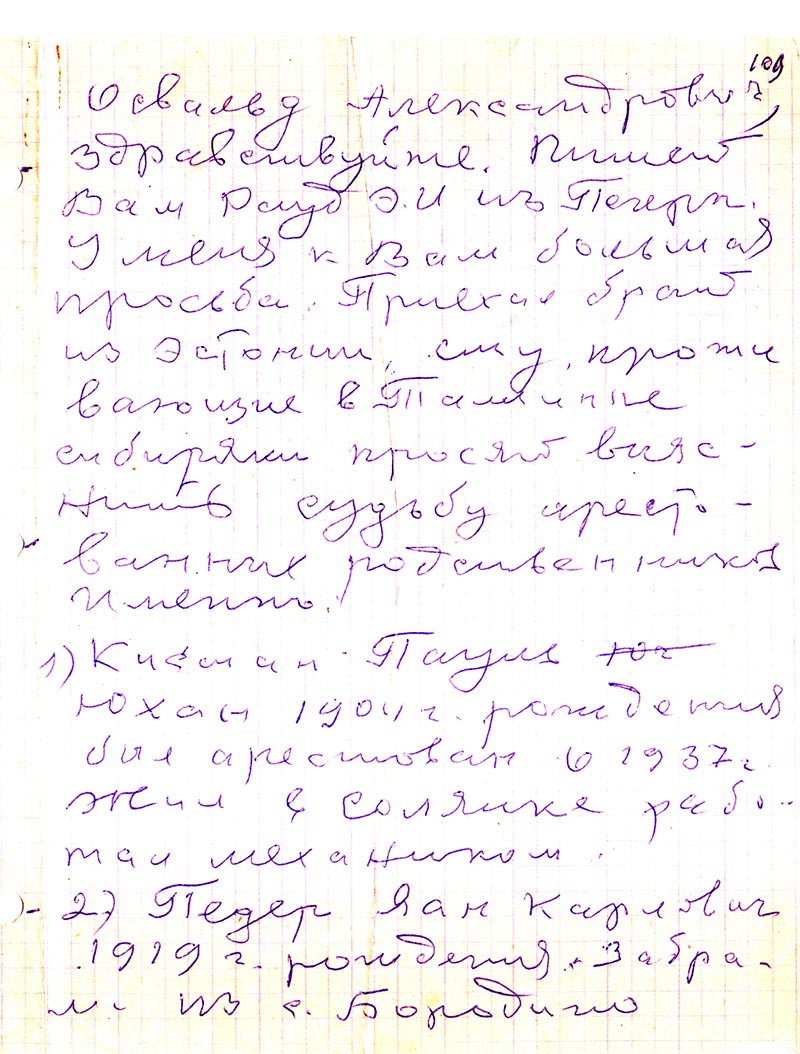 109
Освальд Александрович
здравствуйте. Пишет
Вам Рауд Э.И из Печеры.
У меня к Вам большая
просьба. Приехал брат
из Эстонии, ему, прожи
вающие в Таллинне
сибиряки просят выяс-
нить судьбу аресто-
ванных родственников
Именно.
1) Пауль Юа
Юхан 1904 г. рождения
был арестован в 1937г.
Жил в Солянке рабо-
тал механиком.
2) Педер Яан Карлович
1919 г. рождения. Забра-
ли из с. Бородино